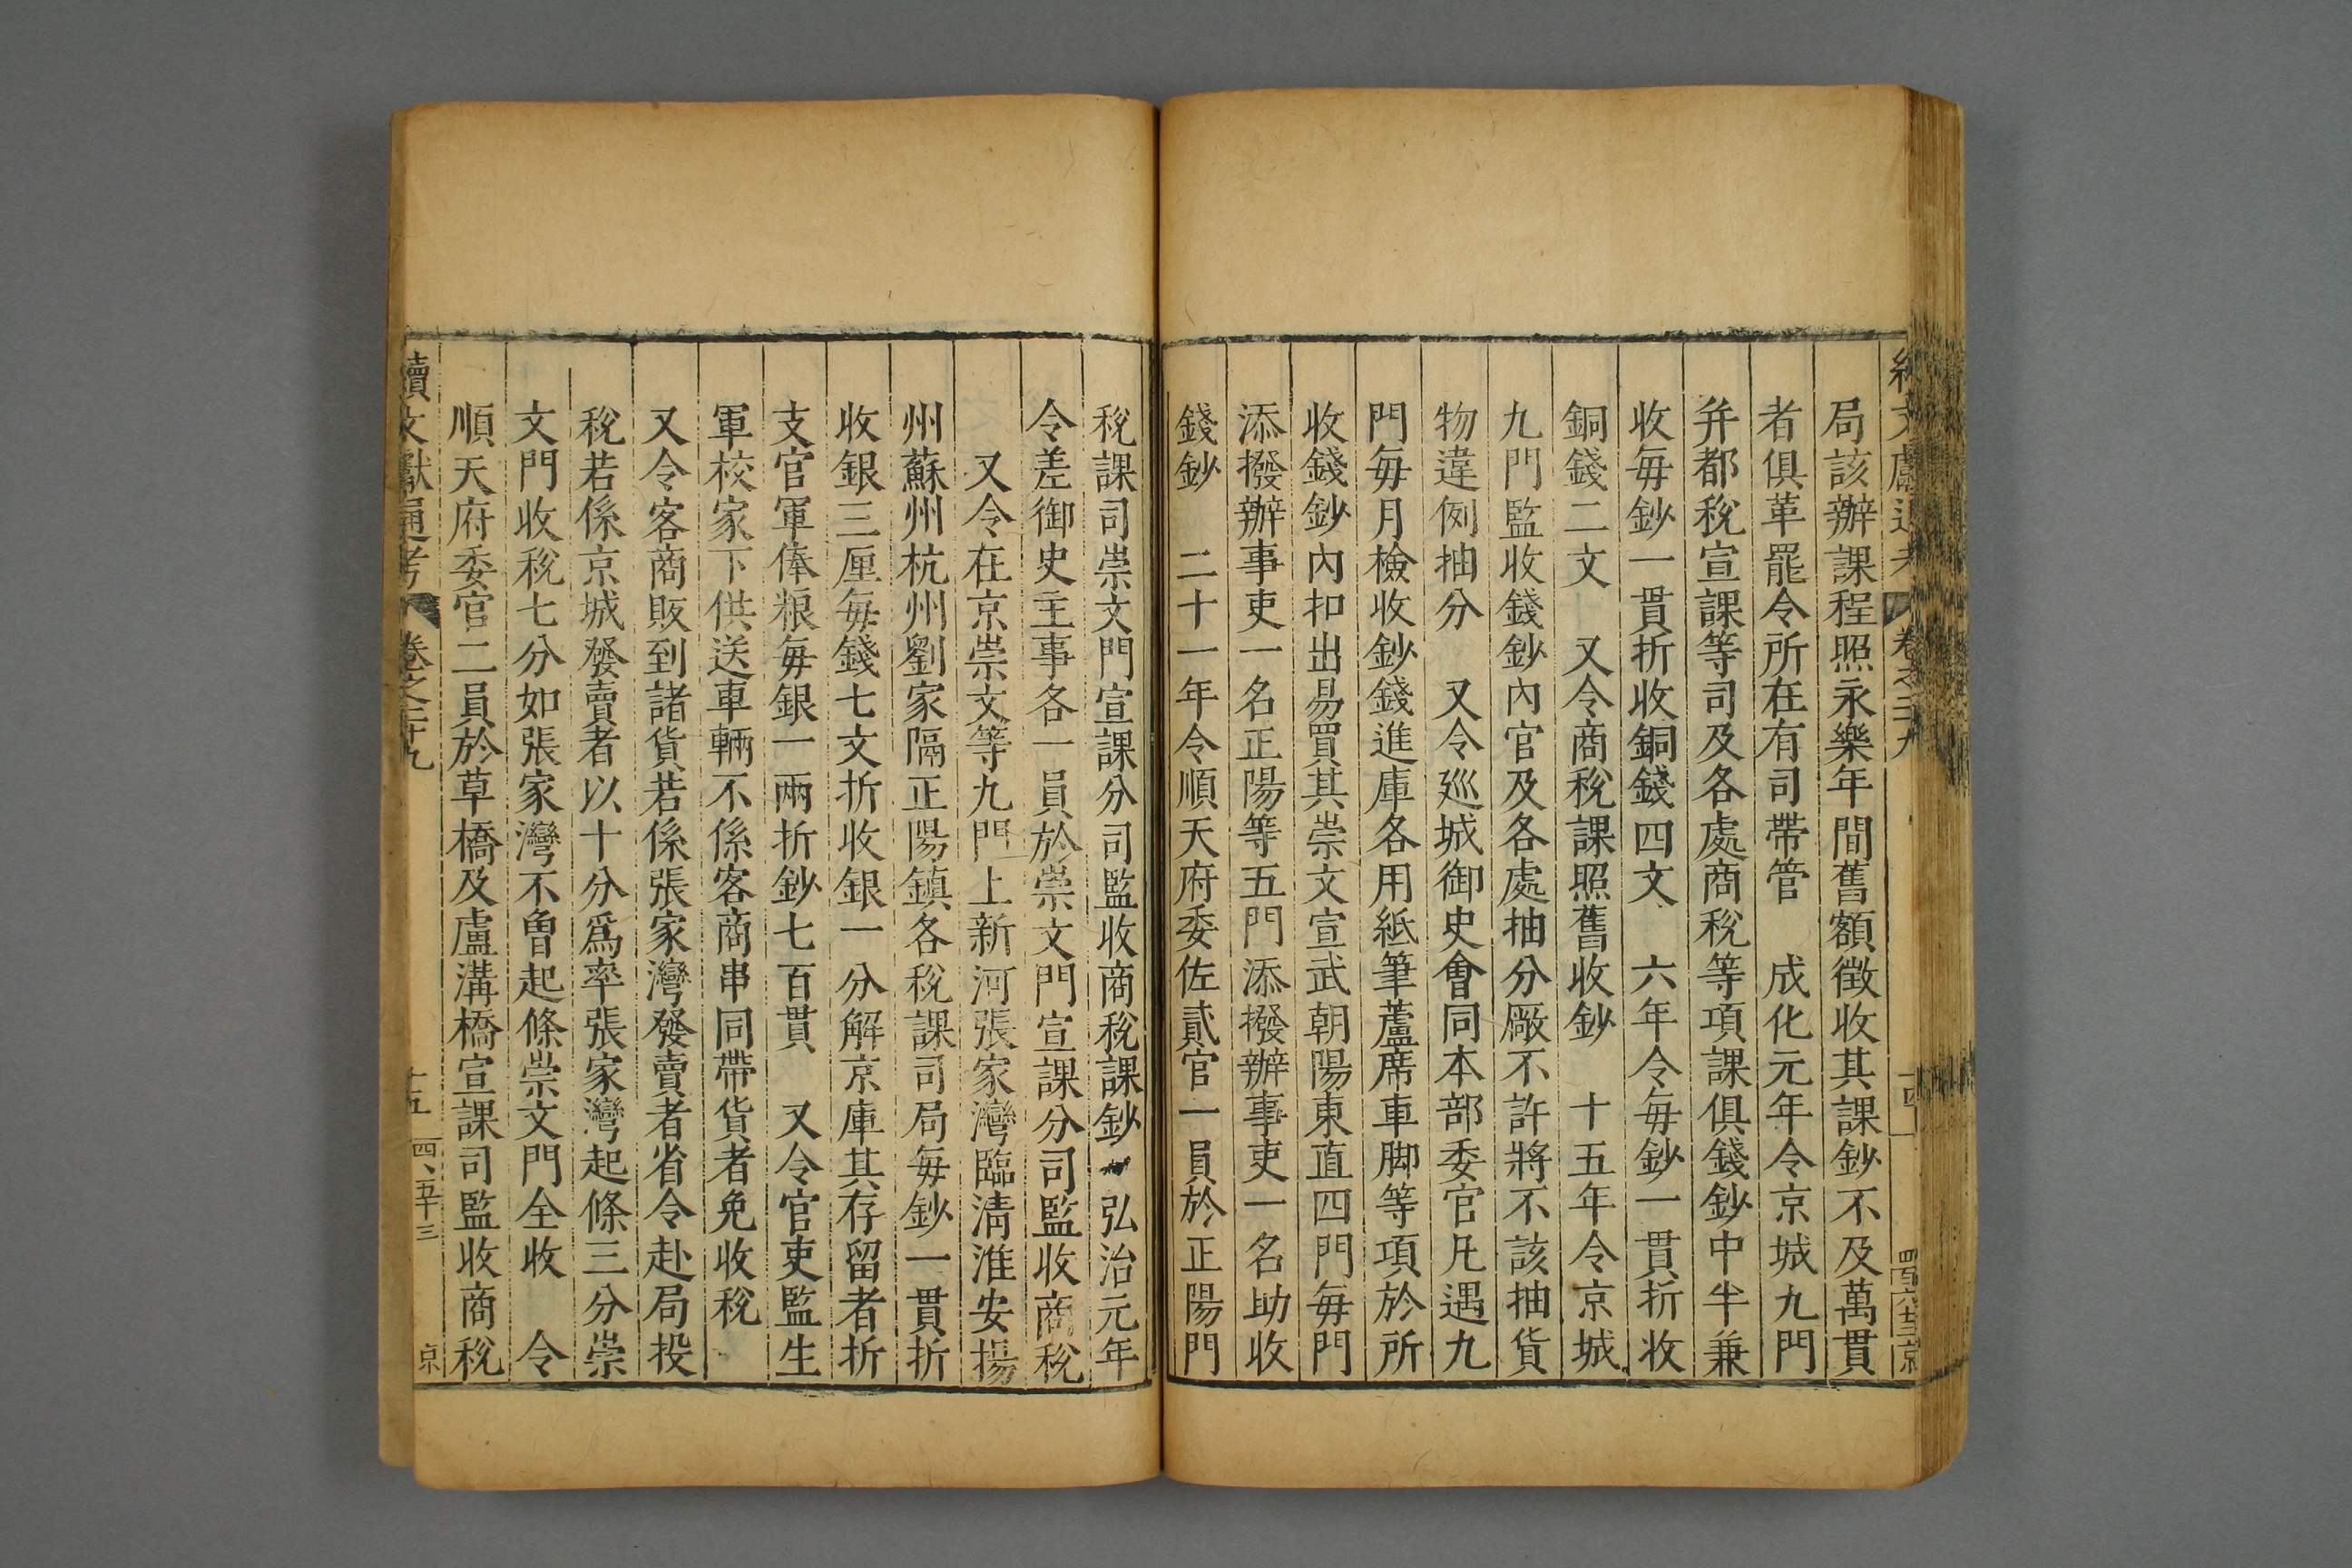 局該辦課程照永樂年間舊額徵收其課鈔不及萬貫
者俱革罷令所在有司帶管　成化元年令京城九門
弁都稅宣課等司及各處商稅等項課俱錢鈔中半兼
收每鈔一貫折收銅錢四文　六年令每鈔一貫折收
銅錢二文　又令商稅課照舊收鈔　十五年令京城
九門監收錢鈔內官及各處抽分厰不許將不該抽貨
物違例抽分　又令廵城御史會同本部委官凡遇九
門每月檢收鈔錢進庫各用紙筆蘆席車脚等項於所
收錢鈔內扣出易買其崇文宣武朝陽東直四門每門
添撥辦事吏一名正陽等五門添撥辦事吏一名助收
錢鈔　二十一年令順天府委佐貳官一員於正陽門
稅課司崇文門宣課分司監收商稅課鈔　弘治元年
令差御史主事各一員於崇文門宣課分司監收商稅
又令在京崇文等九門上新河張家灣臨清淮安揚
州蘇州杭州劉家隔正陽鎮各稅課司局每鈔一貫折
收銀三厘每錢七文折收銀一分解京庫其存留者折
支官軍俸粮每銀一兩折鈔七百貫　又令官吏監生
軍校家下供送車輛不係客商串同帶貨者免收稅
又令客商販到諸貨若係張家灣發賣者省令赴局投
稅若係京城發賣者以十分爲率張家灣起條三分崇
文門收稅七分如張家灣不曾起條崇文門全收　令
順天府委官二員於草橋及盧溝橋宣課司監收商稅
續文獻通考　卷之二十九　十五　京